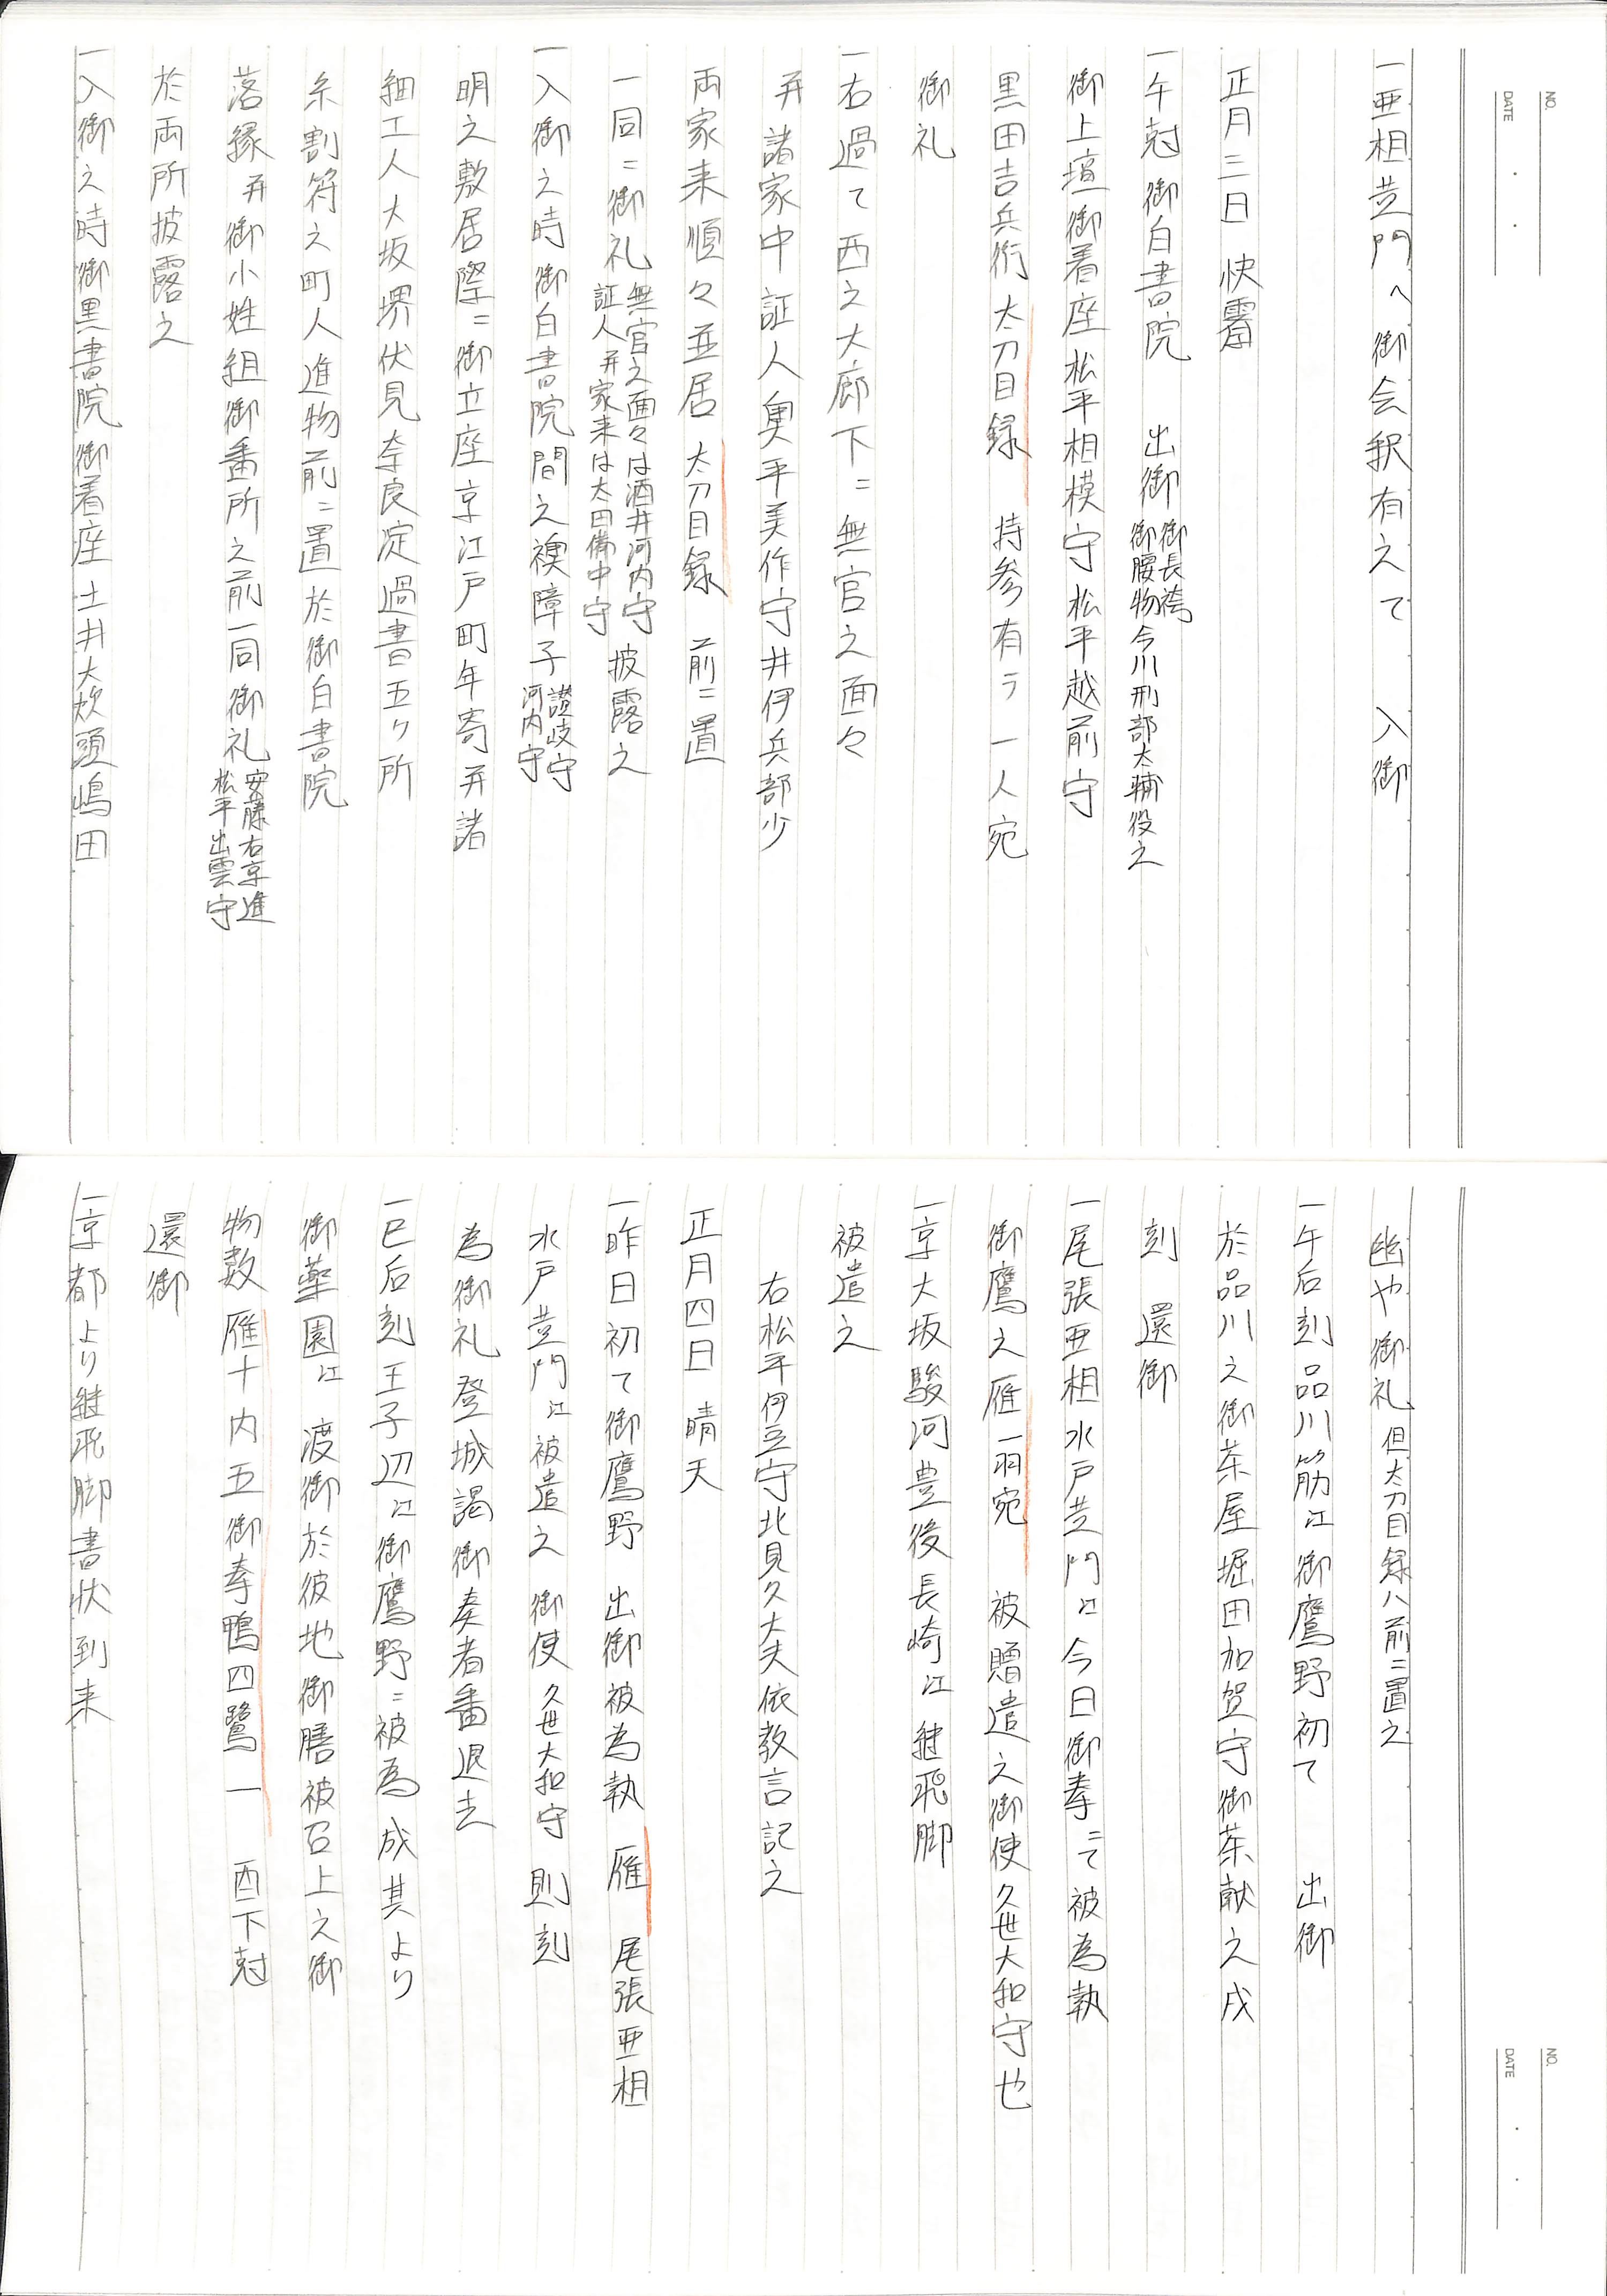 NO.
DATE ・ ・
一亜相芸門へ御会釈有之て 入御
正月三日 快霽
一午尅 御白書院 出御 御長袴 御腰物今川刑部太輔役之
御上壇御着座松平相模守松平越前守
黒田吉兵衛太刀目録 持参有テ一人宛
御礼
一右過て西之大廊下ニ無官之面々
并諸家中証人奥平美作守井伊兵部少
両家来順々並居太刀目録 前ニ置
一同ニ御礼 無官之面々は酒井河内守 証人并家来は太田備中守 披露之
一入御之時御白書院間之襖障子 讃岐守 河内守
明之敷居際ニ御立座京江戸町年寄并諸
細工人大坂堺伏見奈良淀過書五ヶ所
糸割符之町人進物前ニ置於御白書院
落縁并御小姓組御番所之前一同御礼 安藤右京進 松平出雲守
於両所披露之
一入御之時御黒書院御着座土井大炊頭嶋田
NO.
DATE ・ ・
幽や御礼 但太刀目録ハ前ニ置之
一午后刻品川筋江御鷹野初て 出御
於品川之御茶屋堀田加賀守御茶献之戌
刻 還御
一尾張亜相水戸芸門江今日御拳ニて被為執
御鷹之雁一羽宛 被贈遣之御使久世大和守也
一京大坂駿河豊後長崎江継飛脚
被遣之
右松平伊豆守北見久大夫依教言記之
正月四日 晴天
一昨日初て御鷹野 出御被為執 雁 尾張亜相
水戸芸門江被遣之 御使 久世大和守 則刻
為御礼登城謁御奏者番退去
一巳后刻王子辺江御鷹野ニ被為成其より
御薬園江 渡御於彼地御膳被召上之御
物数雁十内五御拳鴨四鷺一 酉下尅
還御
一京都より継飛脚書状到来